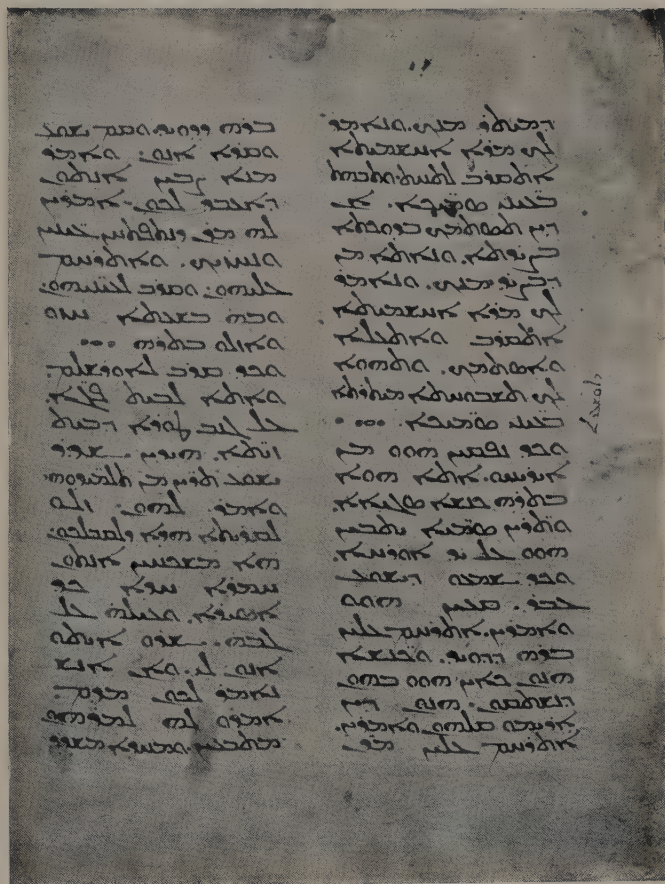 ܕܡܝܩܪ ܡܢܟ. ܘܢܐܡܪ
ܠܟ ܡܪܐ ܐܚܫܡܝܬܐ
ܐܬܩܪܒ ܠܬܚܬ ܘܬܒܗܬ
ܒܥܝܢܝ ܣܡܝܟܐ. ܐܢ
ܕܝܢ ܬܣܬܡܟ ܒܕܘܟܬܐ
ܒܨܝܪܬܐ. ܘܢܐܬܐ ܡܢ
ܕܒܨܝܪ ܡܢܟ. ܘܢܐܡܪ
ܠܟ ܡܪܐ ܐܚܫܡܝܬܐ
ܐܬܩܪܒ ܘܐܬܥܠܐ
ܘܐܣܬܡܟ. ܘܬܗܘܐ
ܠܟ ܬܫܒܘܚܬܐ ܡܝܬܪܬܐ
ܒܥܝܢܝ ܣܡܝܟܐ.
ܘܟܕ ܢܦܩܝܢ ܗܘܘ ܡܢ
ܐܝܪܝܚܘ. ܐܬܐ ܗܘܐ
ܒܬܪܗ ܟܢܫܐ ܣܓܝܐܐ.
ܘܬܪܝܢ ܣܡܝܐ ܝܬܒܝܢ
ܗܘܘ ܥܠ ܝܕ ܐܘܪܚܐ.
ܘܟܕ ܫܡܥܘ ܕܝܫܘܥ
ܥܒܪ. ܩܥܝܢ ܗܘܘ
ܘܐܡܪܝܢ. ܐܬܪܚܡ ܥܠܝܢ
ܒܪܗ ܕܕܘܝܕ. ܘܟܢܫܐ
ܟܐܝܢ ܗܘܘ ܒܗܘܢ
ܕܢܫܬܩܘܢ. ܗܢܘܢ ܕܝܢ
ܐܪܝܡܘ ܩܠܗܘܢ ܘܐܡܪܝܢ.
ܐܬܪܚܡ ܥܠܝܢ ܡܪܢ
ܒܪܗ ܕܕܘܝܕ. ܘܩܡ ܝܫܘܥ
ܘܩܪܐ ܐܢܘܢ. ܘܐܡܪ
ܡܢܐ ܨܒܝܢ ܐܢܬܘܢ
ܕܐܥܒܕ ܠܟܘܢ. ܐܡܪܝܢ
ܠܗ ܡܪܢ ܕܢܬܦܬܚܢ ܥܝܢܝܢ
ܘܢܚܙܝܟ. ܘܐܬܪܚܡ
ܥܠܝܗܘܢ. ܘܩܪܒ ܠܥܝܢܝܗܘܢ.
ܘܒܗ ܒܫܥܬܐ ܚܙܘ
ܘܐܙܠܘ ܒܬܪܗ
ܘܟܕ ܩܪܒ ܠܐܘܪܫܠܡ.
ܘܐܬܐ ܠܒܝܬ ܦܓܐ.
ܥܠ ܓܢܒ ܛܘܪܐ ܕܒܝܬ
ܙܝܬܐ. ܗܝܕܝܢ ܫܕܪ
ܝܫܘܥ ܬܪܝܢ ܡܢ ܬܠܡܝܕܘܗܝ
ܘܐܡܪ ܠܗܘܢ. ܙܠܘ
ܠܩܪܝܬܐ ܗܕܐ ܕܠܩܘܒܠܟܘܢ.
ܗܐ ܡܫܟܚܝܢ ܐܢܬܘܢ
ܚܡܪܐ ܚܕܐ ܟܕ
ܐܣܝܪܐ. ܘܥܝܠܗ ܥܠ
ܓܒܗ. ܫܪܘ ܐܝܬܘ
ܐܢܘܢ ܠܝ. ܘܐܢ ܐܢܫ
ܢܐܡܪ ܠܟܘܢ ܡܕܡ.
ܐܡܪܘ ܠܗ ܠܡܪܗܘܢ
ܡܬܒܥܝܢ. ܘܡܚܕܐ ܡܫܕܪ